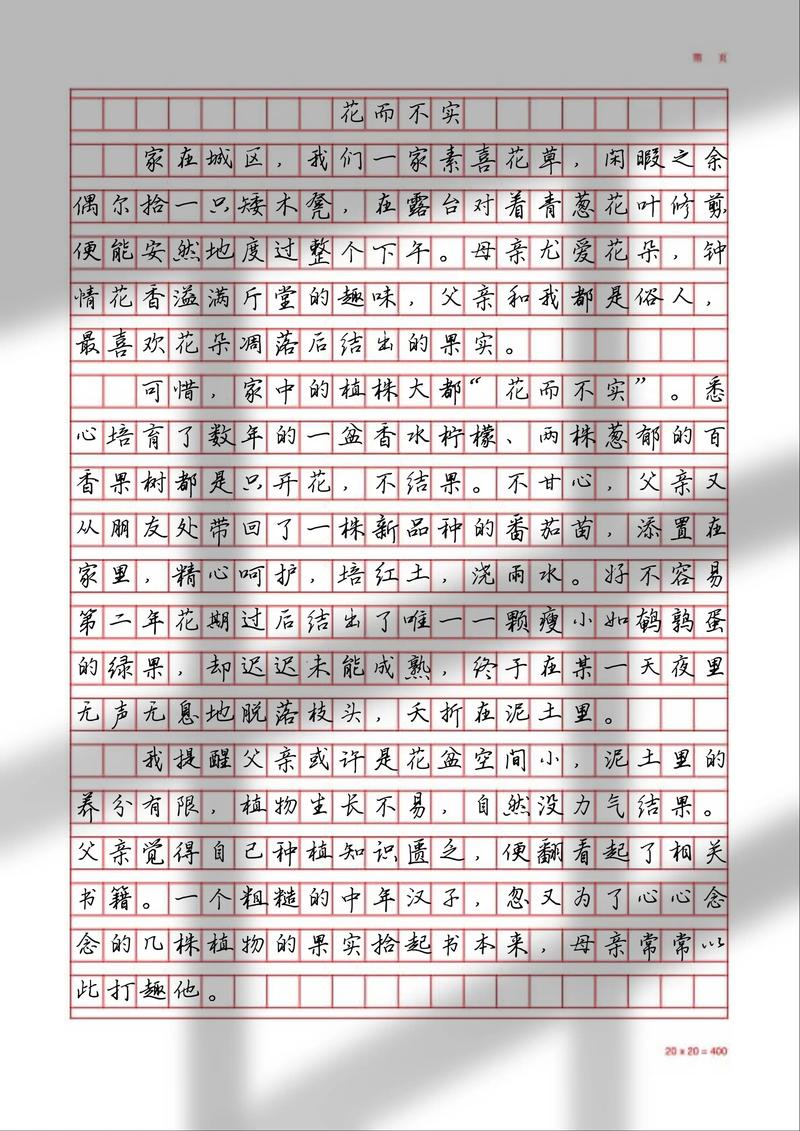 第 页
花而不实
家在城区，我们一家素喜花草，闲暇之余
偶尔拾一只矮木凳，在露台对着青葱花叶修剪
便能安然地度过整个下午。母亲尤爱花朵，钟
情花香溢满厅堂的趣味，父亲和我都是俗人，
最喜欢花朵凋落后结出的果实。
可惜，家中的植株大都“花而不实”。悉
心培育了数年的一盆香水柠檬、两株葱郁的百
香果树都是只开花，不结果。不甘心，父亲又
从朋友处带回了一株新品种的番茄苗，添置在
家里，精心呵护，培红土，浇雨水。好不容易
第二年花期过后结出了唯一一颗瘦小如鹌鹑蛋
的绿果，却迟迟未能成熟，终于在某一天夜里
无声无息地脱落枝头，夭折在泥土里。
我提醒父亲或许是花盆空间小，泥土里的
养分有限，植物生长不易，自然没力气结果。
父亲觉得自己种植知识匮乏，便翻看起了相关
书籍。一个粗糙的中年汉子，忽又为了心心念
念的几株植物的果实拾起书本来，母亲常常以
此打趣他。
20 x 20 = 400